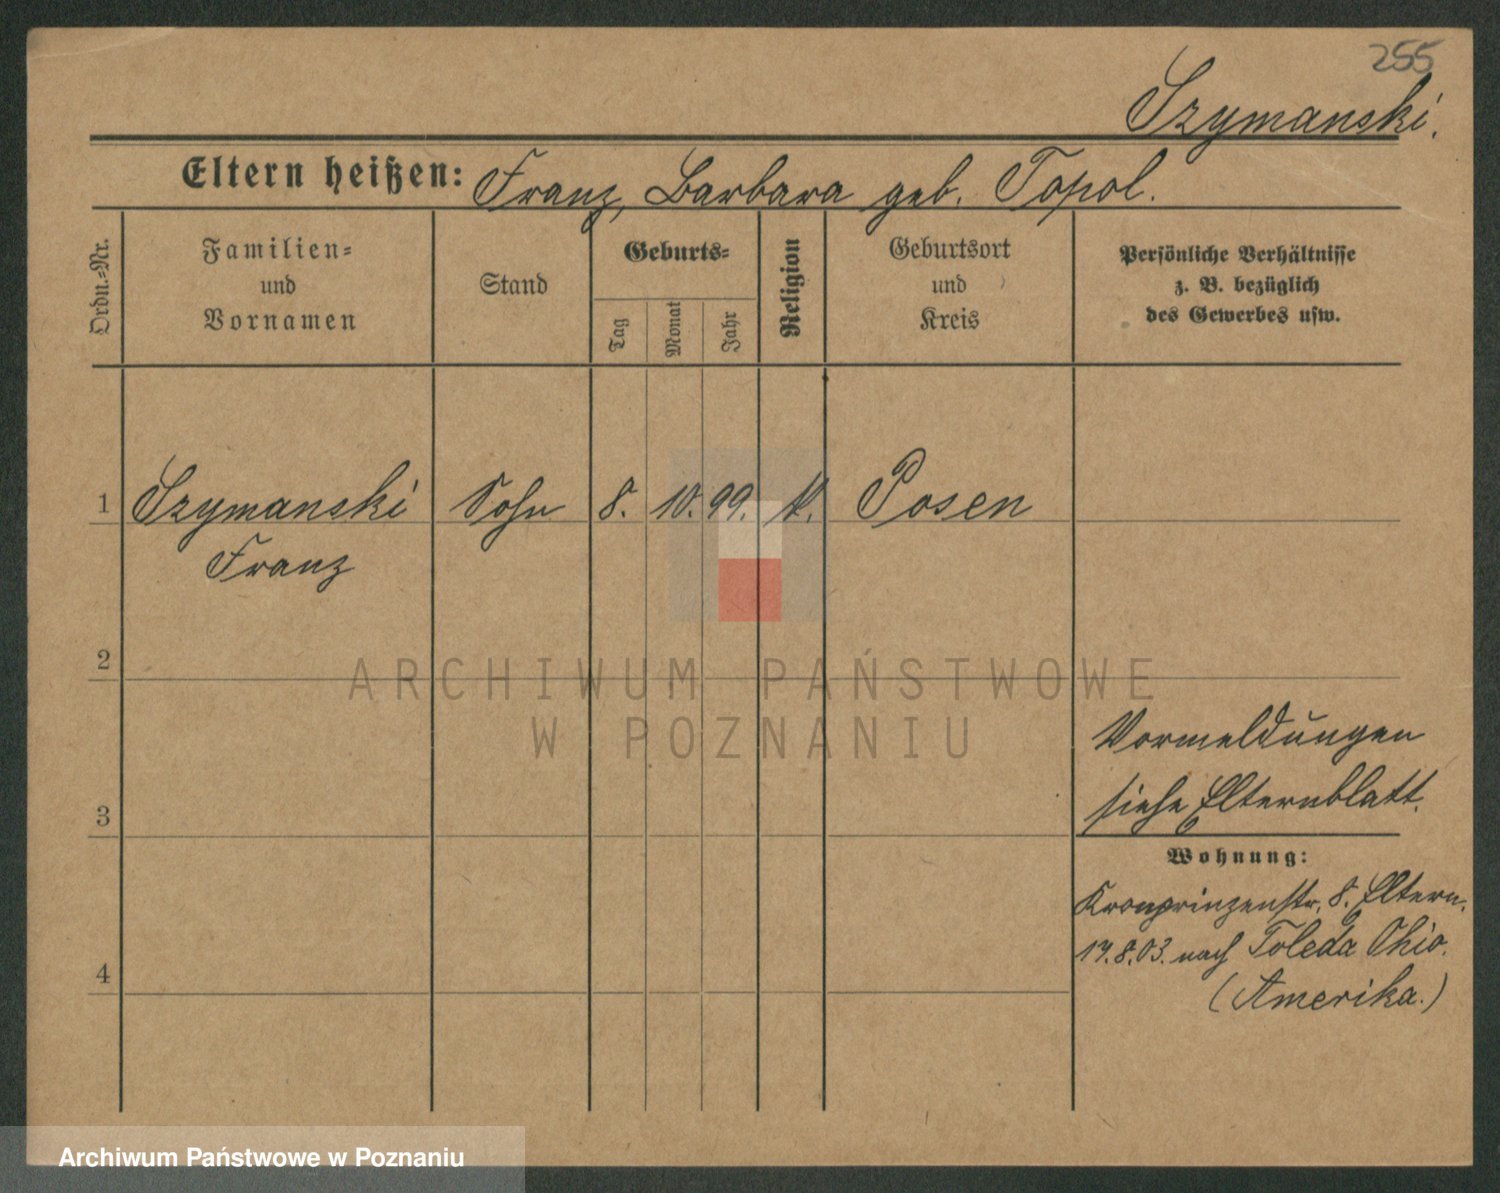 255
Szymanski.
Eltern heißen: Franz, Barbara geb. Topol.
Ordn.=Nr.
Familien=
und
Vornamen
Stand
Geburts=
Tag
Monat
Jahr
Religion
Geburtsort
und
Kreis
Persönliche Verhältnisse
z. B. bezüglich
des Gewerbes usw.
1 Szymanski Sohn 8. 10. 99. k. Posen
Franz
2
ARCHIWUM PAŃSTWOWE
W POZNANIU
Vormeldungen
siehe Elternblatt.
3
Wohnung:
Kronprinzenstr. 8. Eltern.
17.8.03. nach Toleda Ohio.
4
(Amerika.)
Archiwum Państwowe w Poznaniu